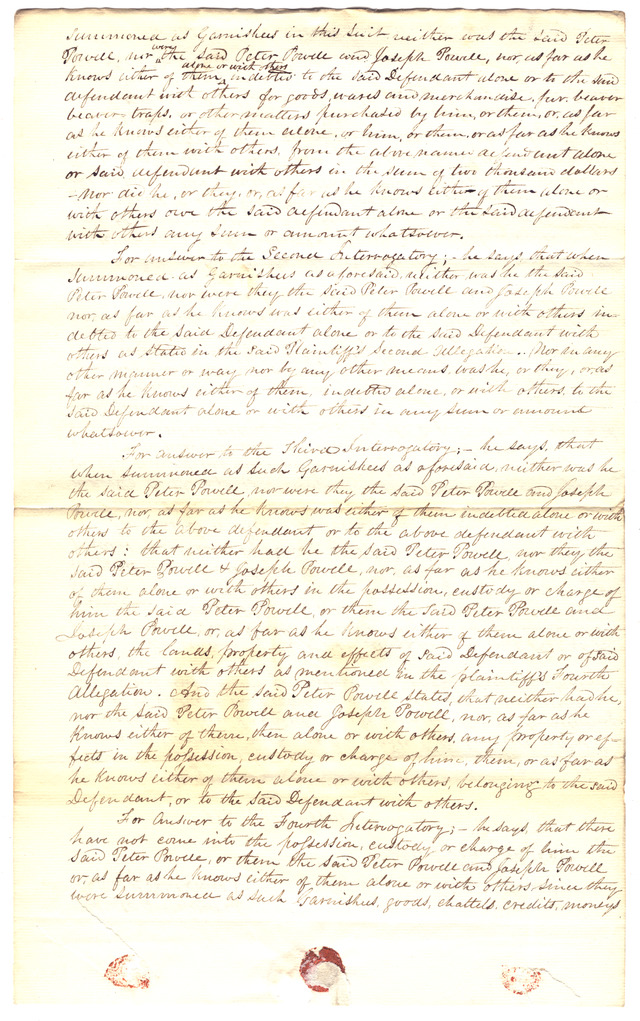 summoned as Garnishees in this Suit neither was the said Peter
Powell, nor were the said Peter Powell and Joseph Powell, nor, as far as he
knows either of them, alone or with others indebted to the said Defendant alone or to the said
defendant with others for goods, wares and merchandise, fur, beaver
beaver traps, or other matters purchased by him, or them, or, as far
as he knows either of them alone, or him, or them, or as far as he knows
either of them with others, from the above named defendant alone
or said defendant with others in the sum of two thousand dollars
– Nor did he, or they, or, as far as he knows either of them alone or
with others owe the said defendant alone or the said defendent
with others any sum or amount whatsoever.
For answer to the Second Interrogatory; – he says, that when
summoned as Garnishees as aforesaid, neither was he the said
Peter Powell, nor were they the said Peter Powell and Joseph Powell
nor, as far as he knows was either of them alone or with others in-
debted to the said Defendant alone or to the said Defendant with
others as stated in the said Plaintiff's Second Allegation. Nor in any
other manner or way nor by any other means, was he, or they, or as
far as he knows either of them, indebted alone, or with others, to the
said Defendant alone or with others in any sum or amount
whatsower.
For answer to the Third Interrogatory; – he says, that
when summoned as such Garnishees as aforesaid, neither was he
the said Peter Powell, nor were they the said Peter Powell and Joseph
Powell, nor, as far as he knows was either of them indebted alone or with
others to the above defendant or to the above defendant with
others: that neither had he the said Peter Powell, nor they the
said Peter Powell & Joseph Powell, nor, as far as he knows either
of them alone or with others in the possession, custody or charge of
him the said Peter Powell, or them the said Peter Powell and
Joseph Powell, or, as far as he knows either of them alone or with
others, the lands, property and effects of said Defendant or of said
Defendant with others as mentioned in the plaintiff's Fourth
Allegation. And the said Peter Powell states, that neither had he,
nor the said Peter Powell and Joseph Powell, nor, as far as he
knows either of them, then alone or with others, any property or ef-
fects in the possession, custody or charge of him, them, or as far as
he knows either of them alone or with others, belonging to the said
Defendant, or to the said Defendant with others.
For Answer to the Fourth Interrogatory; – he says, that there
have not come into the possession, custody or charge of him the
said Peter Powell, or them the said Peter Powell and Joseph Powell
or, as far as he knows either of them alone or with others, since they
were summoned as such Garnishees, goods, chattels, credits, moneys